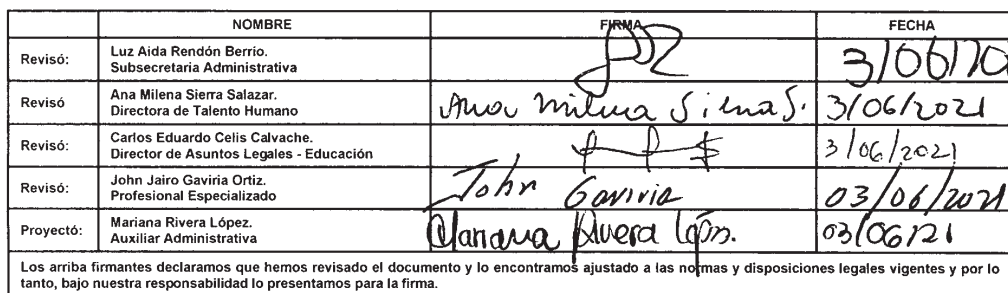 NOMBRE FIRMA FECHA
Revisó: Luz Aida Rendón Berrio.
Subsecretaria Administrativa 3/06/20
Revisó Ana Milena Sierra Salazar.
Directora de Talento Humano Ana Milena Sierra S. 3/06/2021
Revisó: Carlos Eduardo Celis Calvache.
Director de Asuntos Legales - Educación 3/06/2021
Revisó: John Jairo Gaviria Ortiz.
Profesional Especializado John Gaviria 03/06/2021
Proyectó: Mariana Rivera López.
Auxiliar Administrativa Mariana Rivera López. 03/06/21
Los arriba firmantes declaramos que hemos revisado el documento y lo encontramos ajustado a las normas y disposiciones legales vigentes y por lo
tanto, bajo nuestra responsabilidad lo presentamos para la firma.